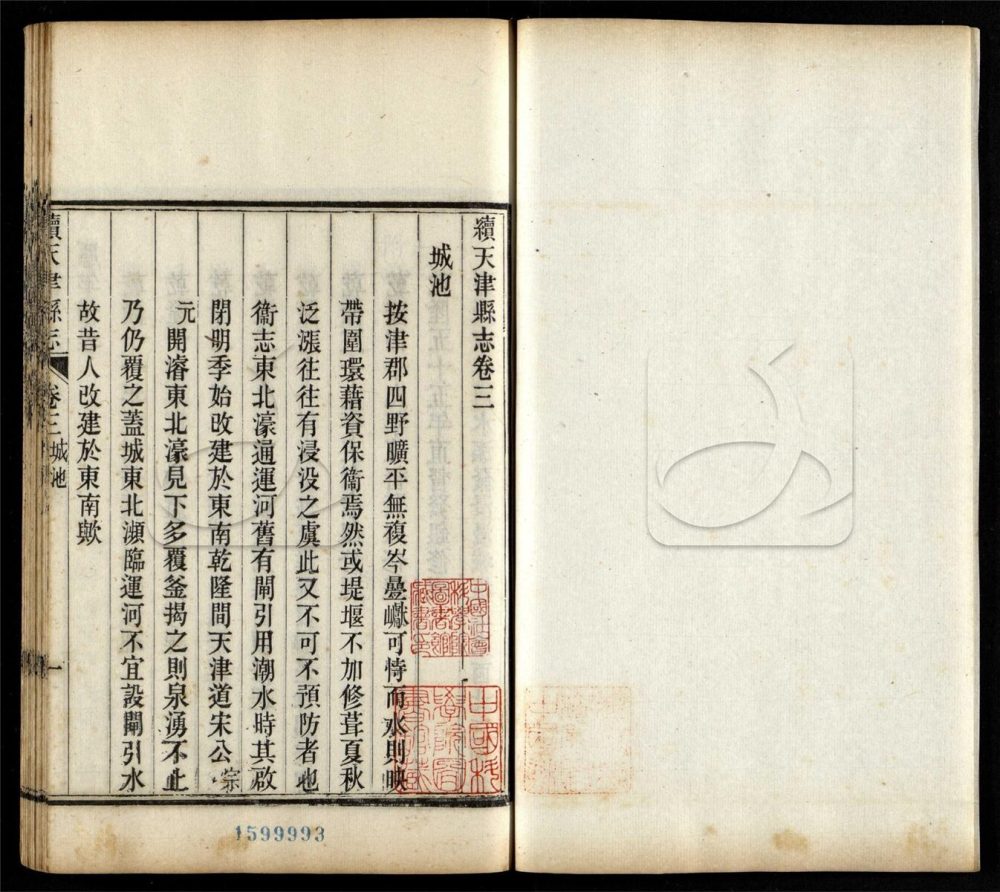 續天津縣志卷三
城池
按津郡四野曠平無複岑疊巘可恃而水則映
帶圍環藉資保衞焉然或堤堰不加修葺夏秋
泛漲往往有浸没之虞此又不可不預防者也
衞志東北濠通運河舊有閘引用潮水時其啟
閉明季始改建於東南乾隆間天津道宋公宗
元開濬東北濠見下多覆釜揭之則泉湧不止
乃仍覆之蓋城東北瀕臨運河不宜設閘引水
故昔人改建於東南歟
續天津縣志 卷三 城池 一
1599993